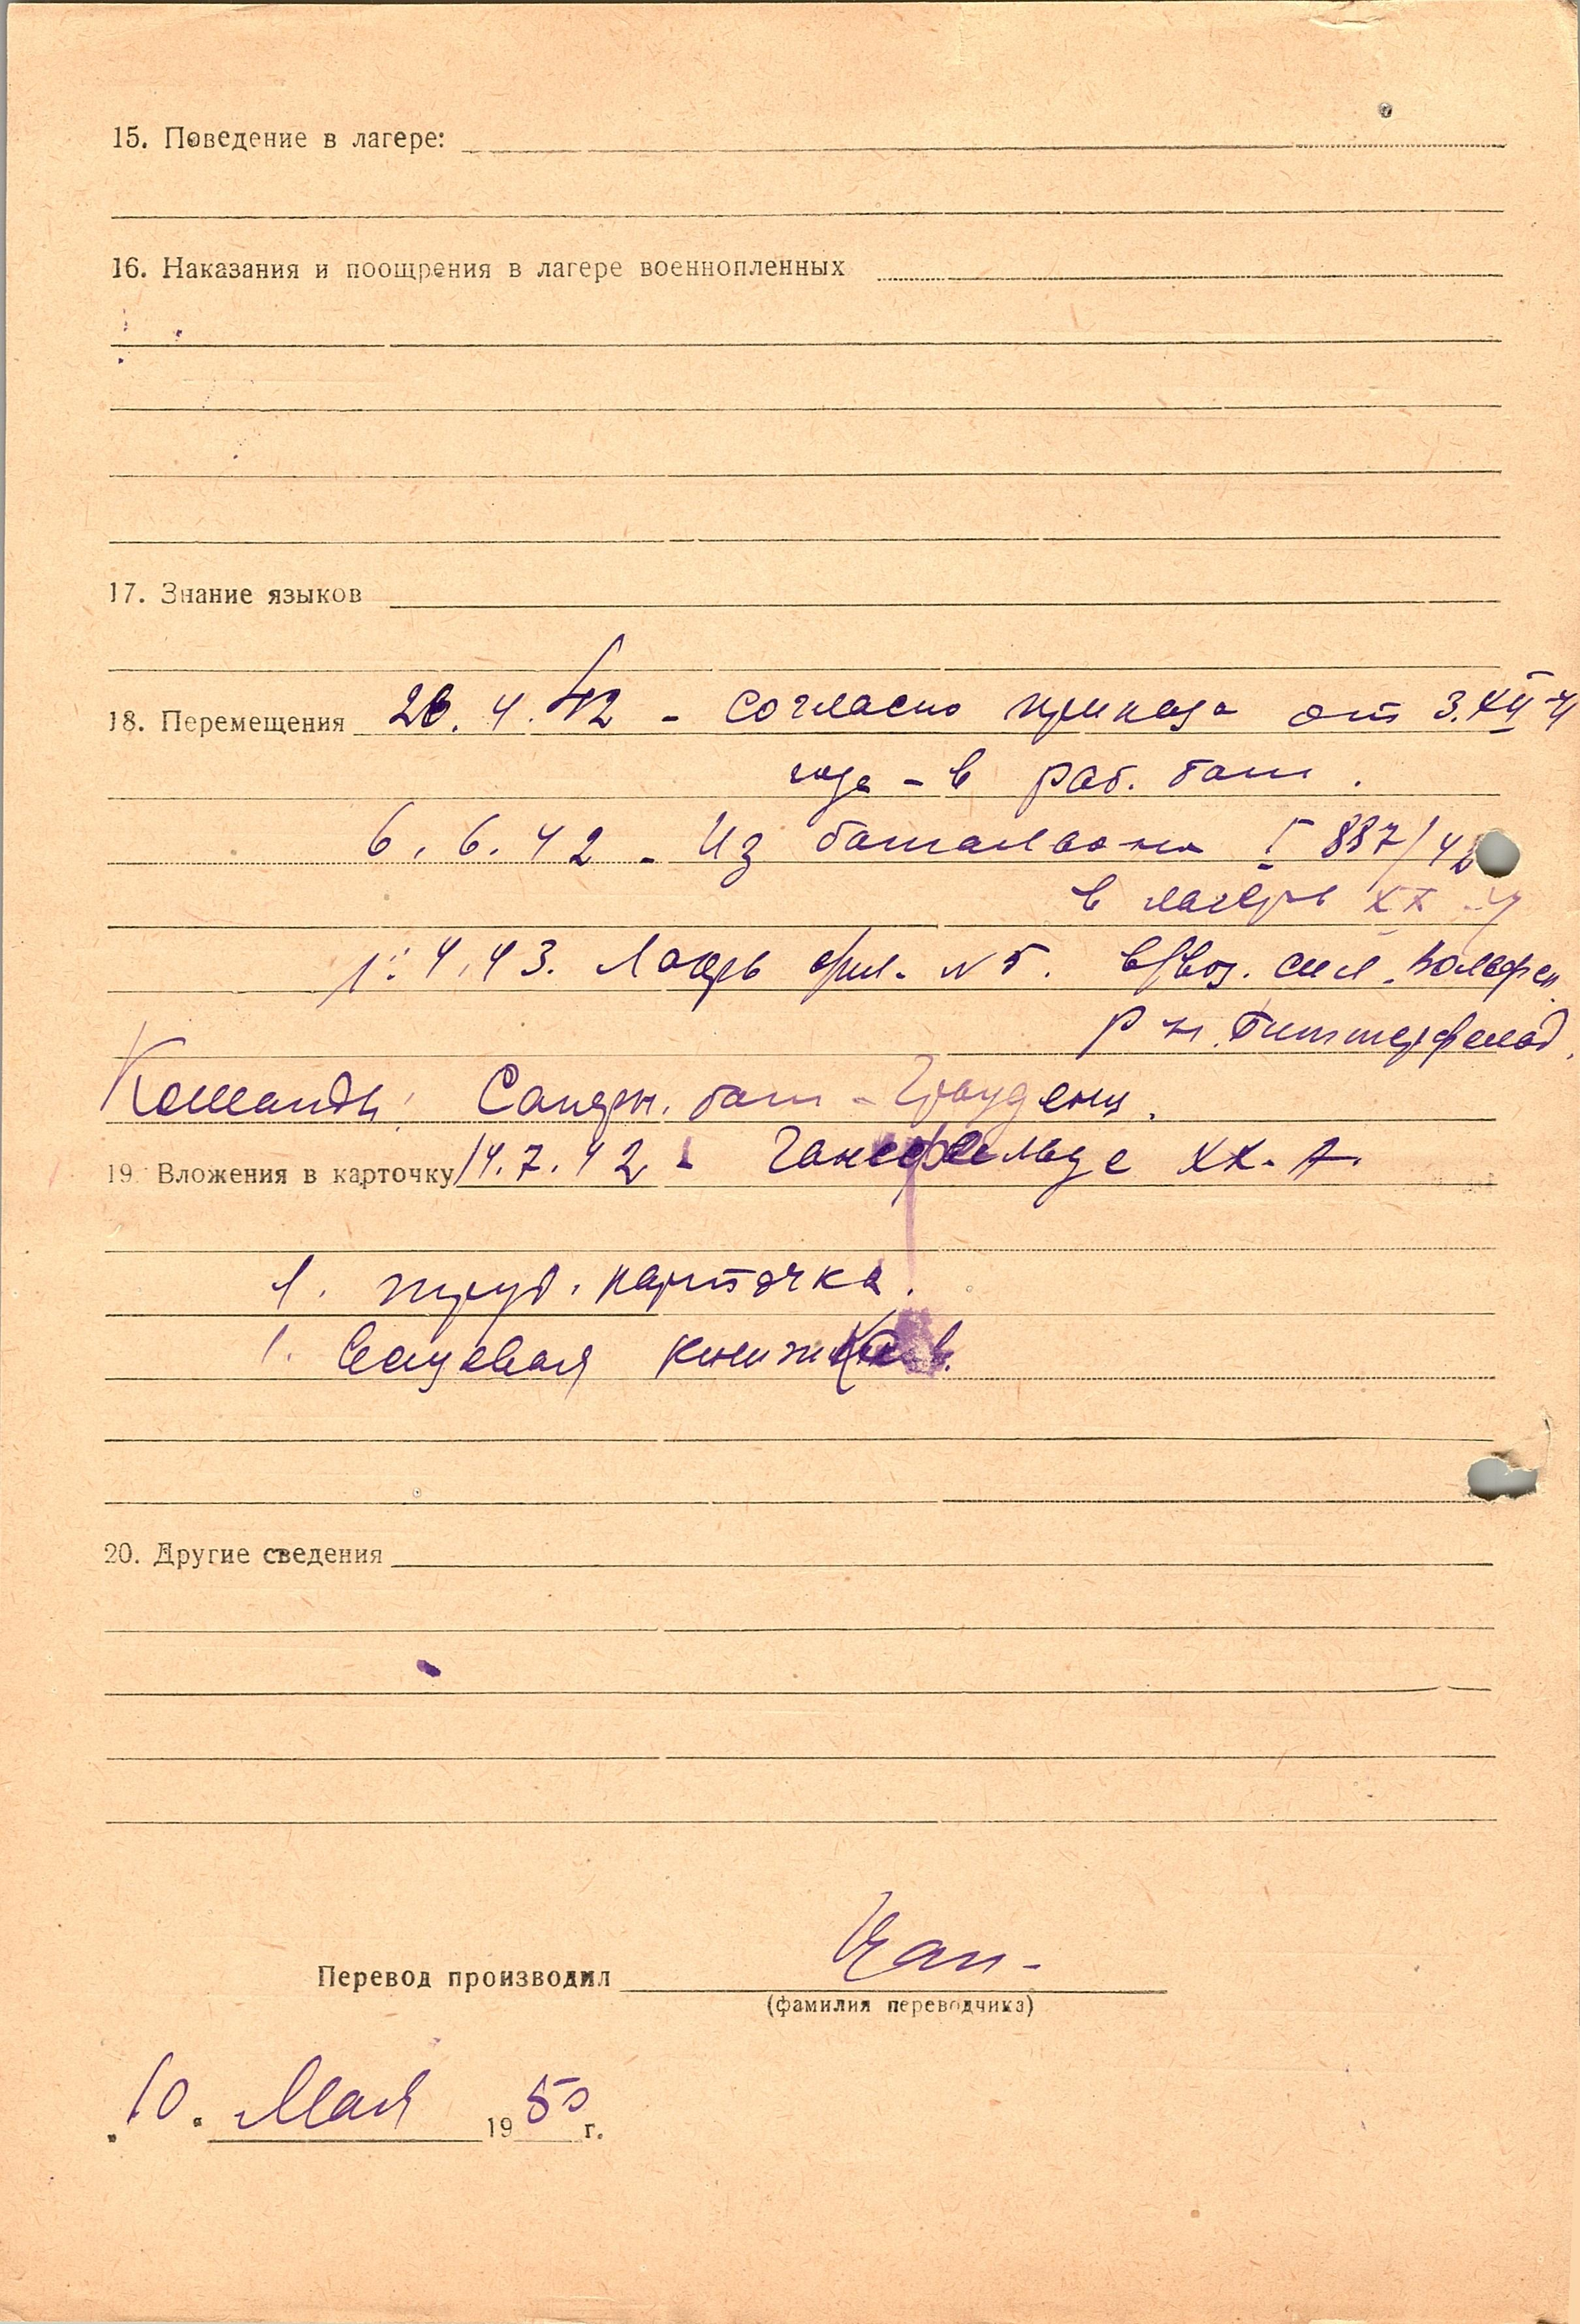 15. Поведение в лагере:
16. Наказания и поощрения в лагере военнопленных
17. Знание языков
18. Перемещения 26.4.42 - согласно приказа от 3.XII-4
года - в раб. бат.
6.6.42 - Из баталиона I 887/42
в лагерь XX
1.4.43. Лагерь фил. N 5. сил. Вольфен
р-н. Биттерфельд.
Команды: Саперн. бат - Грауденц.
19. Вложения в карточку 14.7.42 - XX-A.
1. труд. карточка.
1. Вещевая книжка.
20. Другие сведения
Перевод производил
(фамилия переводчика)
10. Мая 1950 г.